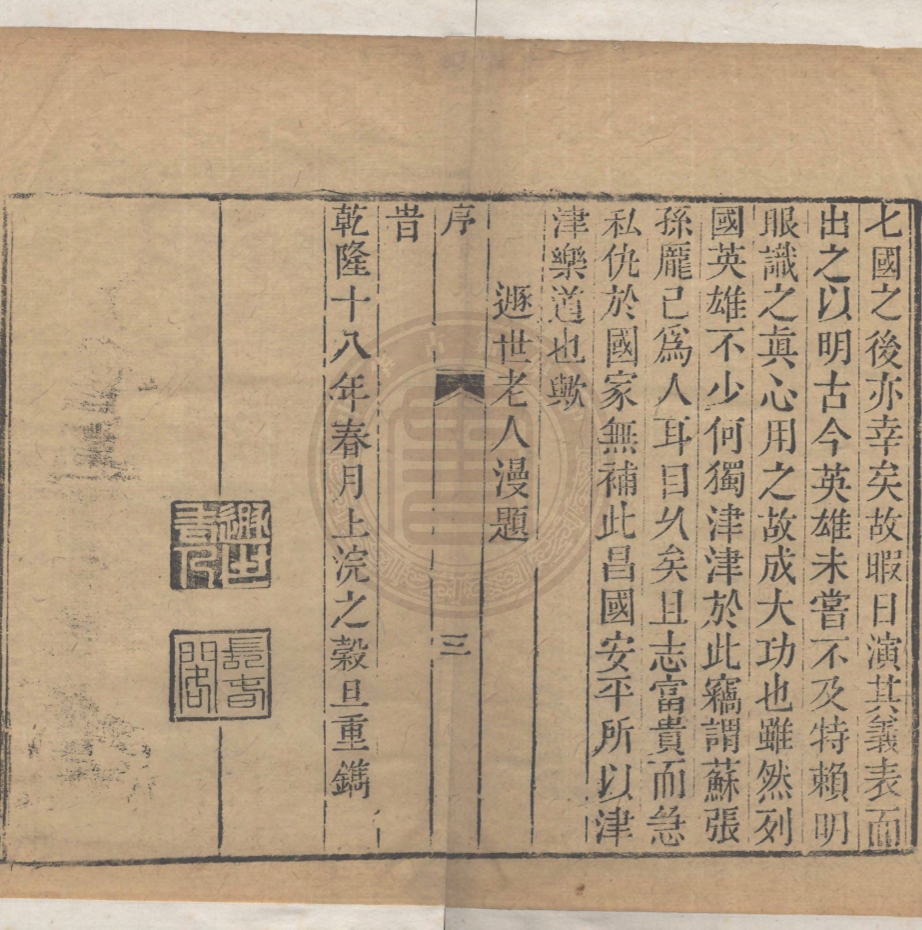 七國之後亦幸矣故暇日演其義表而
出之以明古今英雄未嘗不及特賴明
眼識之真心用之故成大功也雖然列
國英雄不少何獨津津於此竊謂蘇張
孫龐已爲人耳目久矣且志富貴而急
私仇於國家無補此昌國安平所以津
津樂道也歟
遯世老人漫題
序
三
昔
乾隆十八年春月上浣之穀旦重鐫
遯世
老人